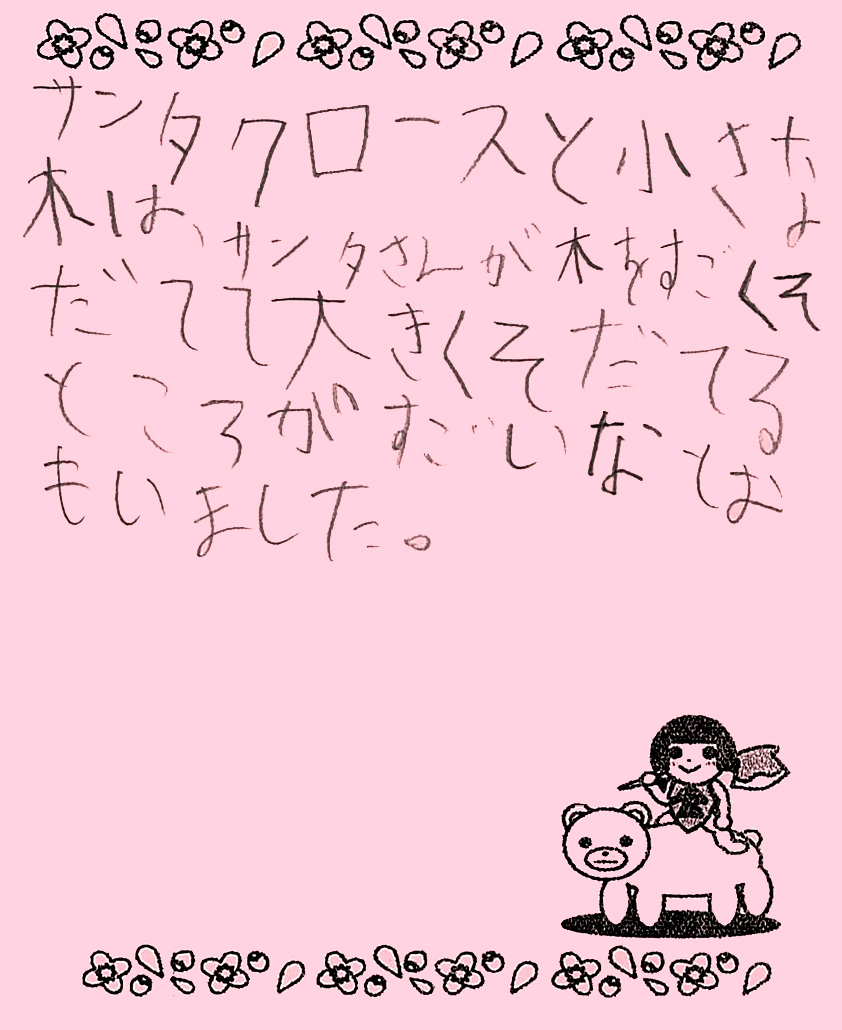 サンタクロースと小さな
木は、サンタさんが木をすごくそ
だてて大きくそだてる
ところがすごいなとお
もいました。